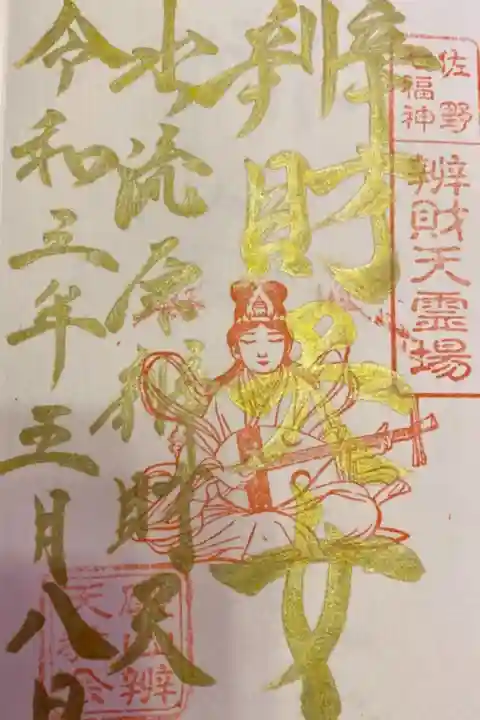 佐野
七福神
辨財天霊場
辨財尊天
出流原辨財天
令和五年五月八日